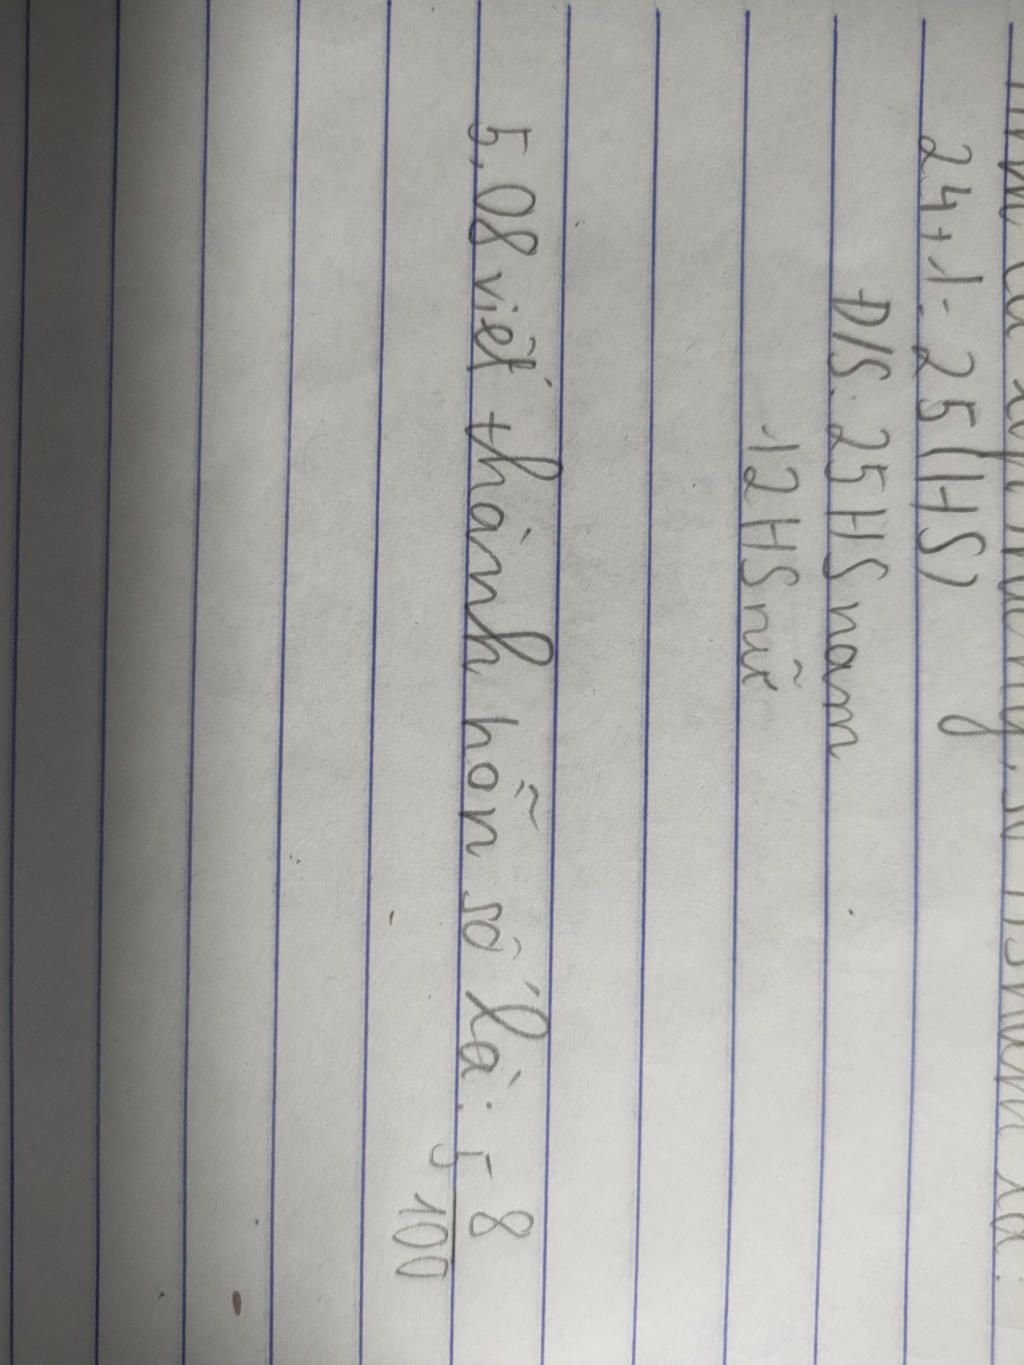 24+1=25(HS)
Đ/S: 25HS nam
12HS nữ
5,08 viết thành hỗn số là: 5 8/100